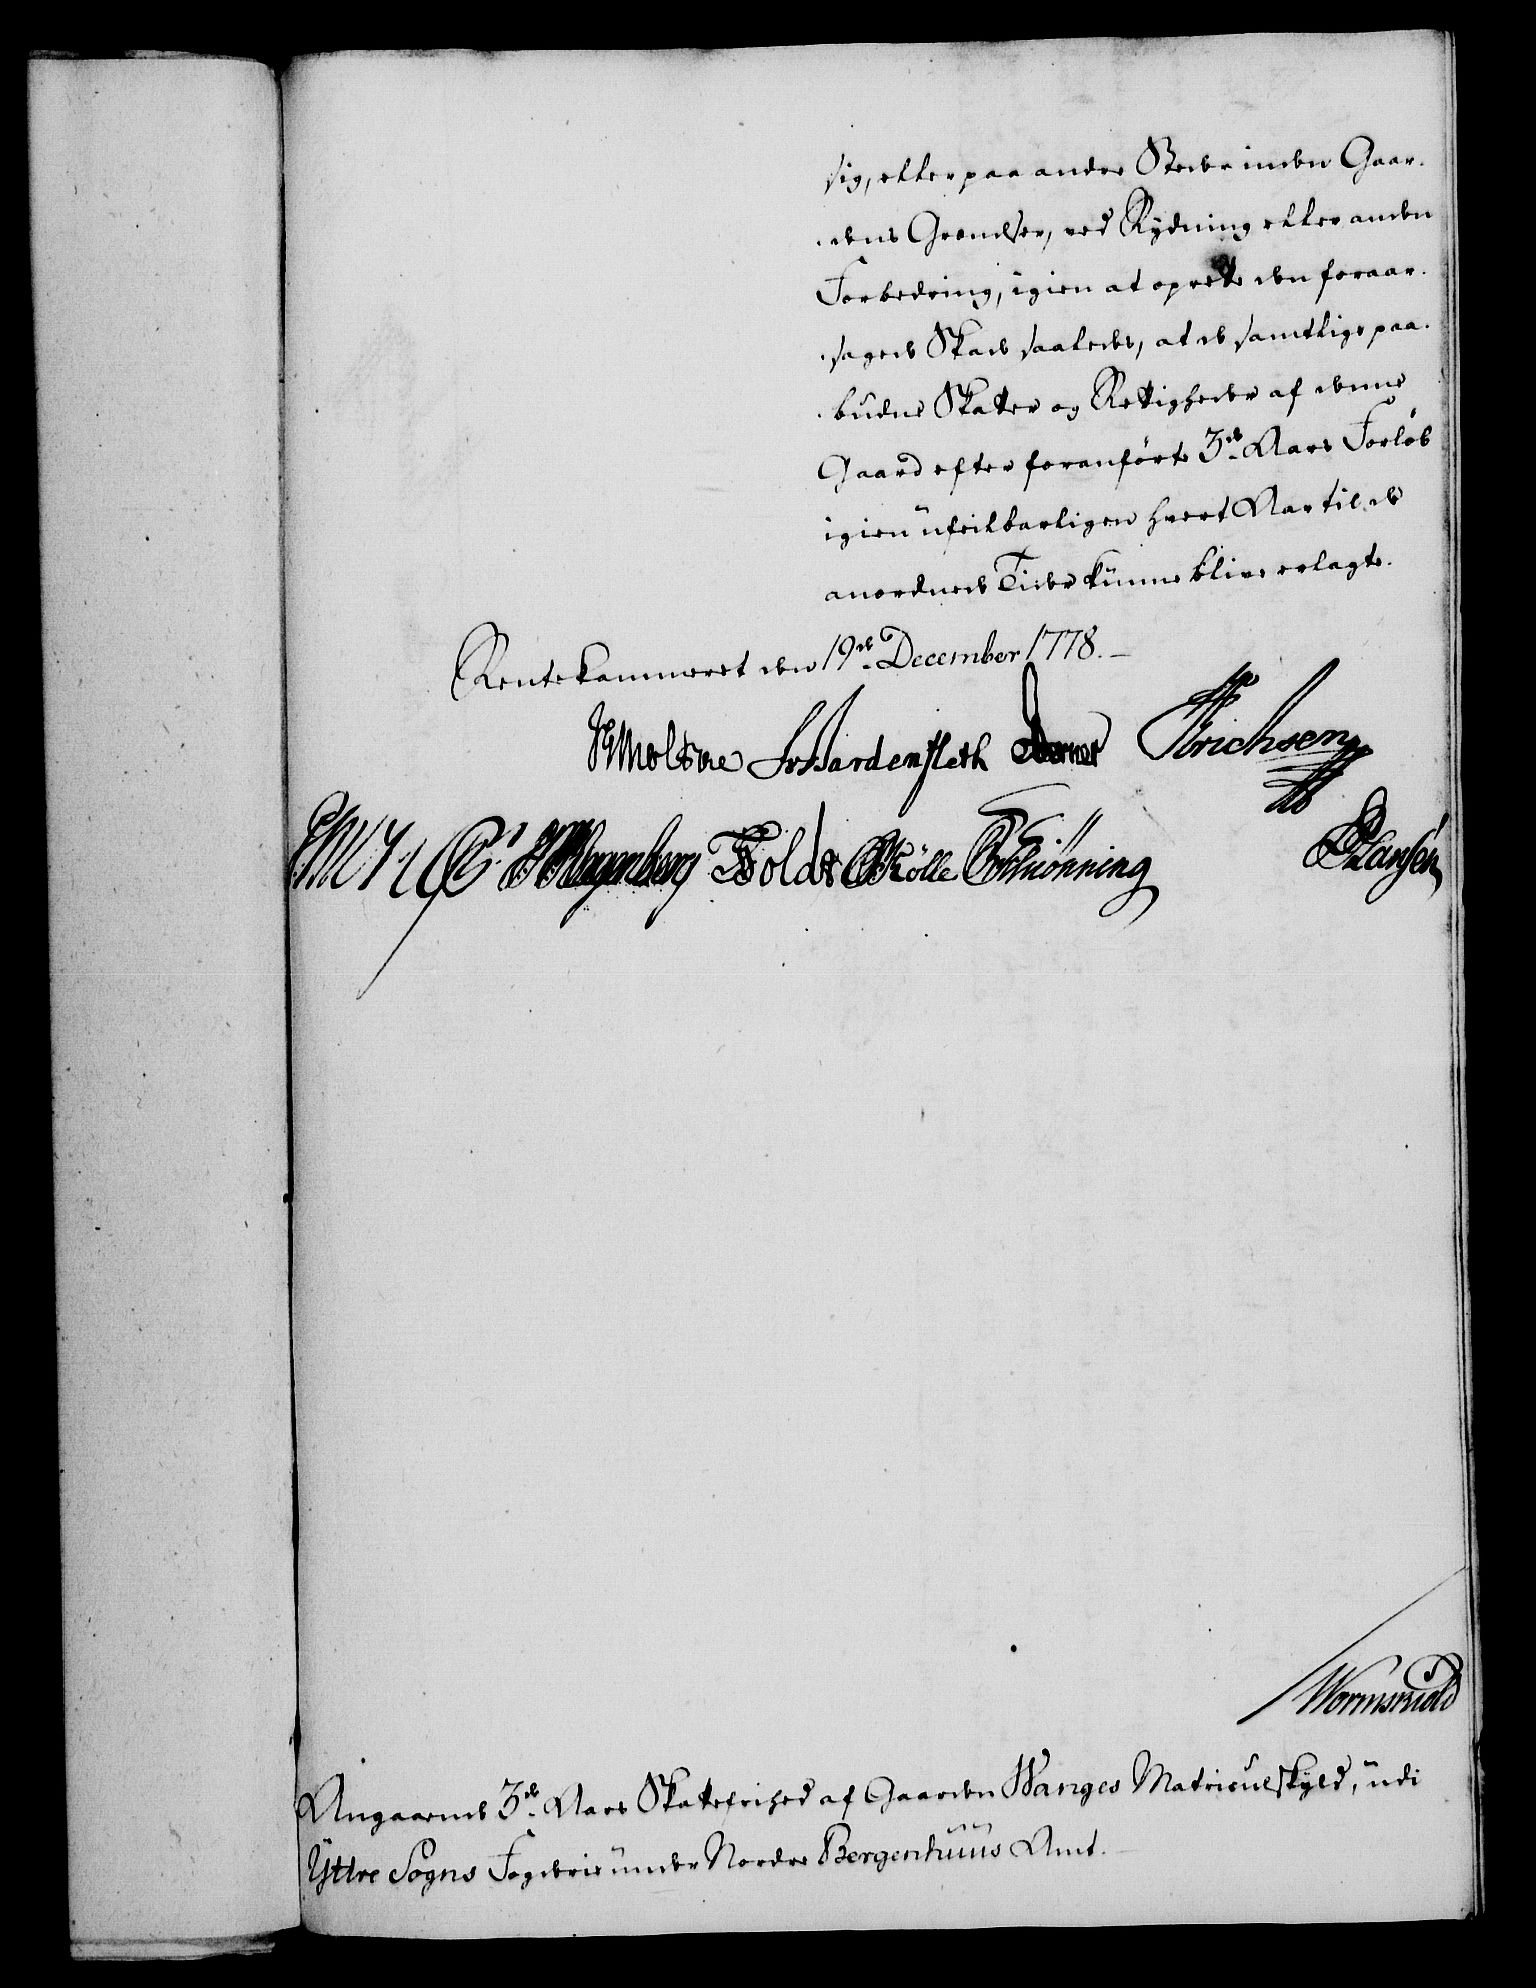 sig, eller paa andre Steder inden Gaar-
dens Grendser, ved Rydning eller anden
Forbedring, igien at oprette den foraar-
sagede Skade saaledes, at de samtlige paa-
budne Skatter og Rettigheder af denne
Gaard efter foranførte 3de Aars Forløb
igien ufeilbarligen hvert Aar til de
anordnede Tider kunne blive erlagte.
Rentekammeret den 19de December 1778.
HMoltke JvHardenfleth Berner Erichsen
Holdt Rølle TSchiønning PHansen
Wormskiold
Angaaende 3de Aars Skattefrihed af Gaarden Wanges Matriculskyld, udi
Yttre Sogns Fogderie under Nordre Bergenhuus Amt.